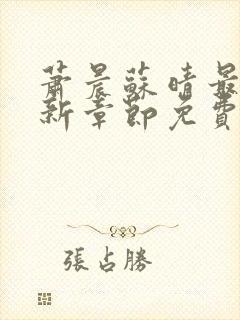 蕭晨蘇晴最
新章節免費
張占勝